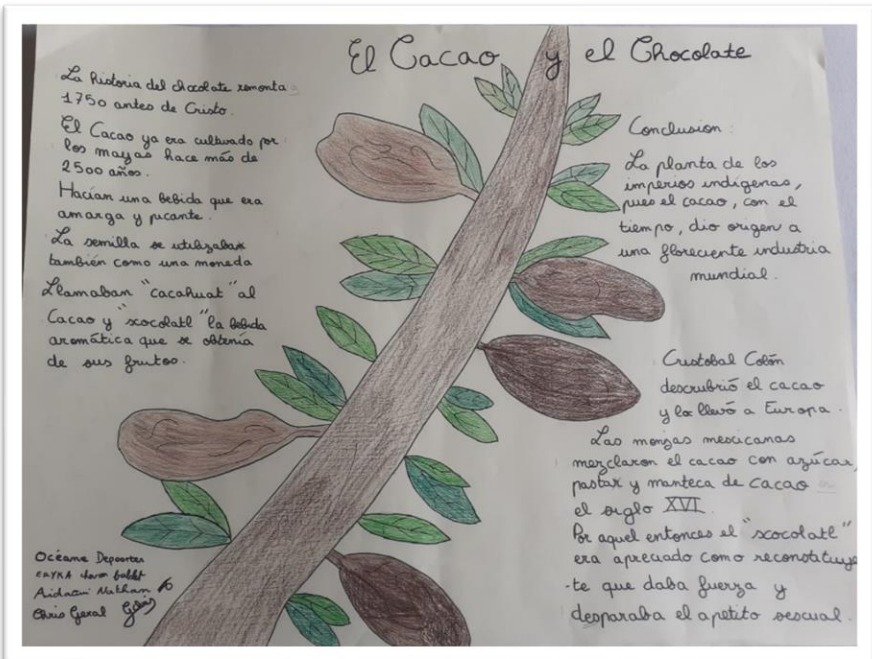 El Cacao y el Chocolate
La historia del chocolate remonta
1750 antes de Cristo.
El Cacao ya era cultivado por
los mayas hace más de
2500 años.
Hacían una bebida que era
amarga y picante.
La semilla se utilizaban
también como una moneda
Llamaban "cacahuat" al
Cacao y "xocolatl" la bebida
aromática que se obtenía
de sus frutos.
Conclusion:
La planta de los
imperios indígenas,
pues el cacao, con el
tiempo, dio origen a
una floreciente industria
mundial.
Cristobal Colón
descrubrió el cacao
y lo llevó a Europa.
Las monjas mexicanas
mezclaron el cacao con azúcar,
pastar y manteca de cacao
el siglo XVI.
Por aquel entonces el "xocolatl"
era apreciado como reconstituye
-te que daba fuerza y
desparaba el apetito sexual.
Océane Depoorter
Nathan
Chris Gexal